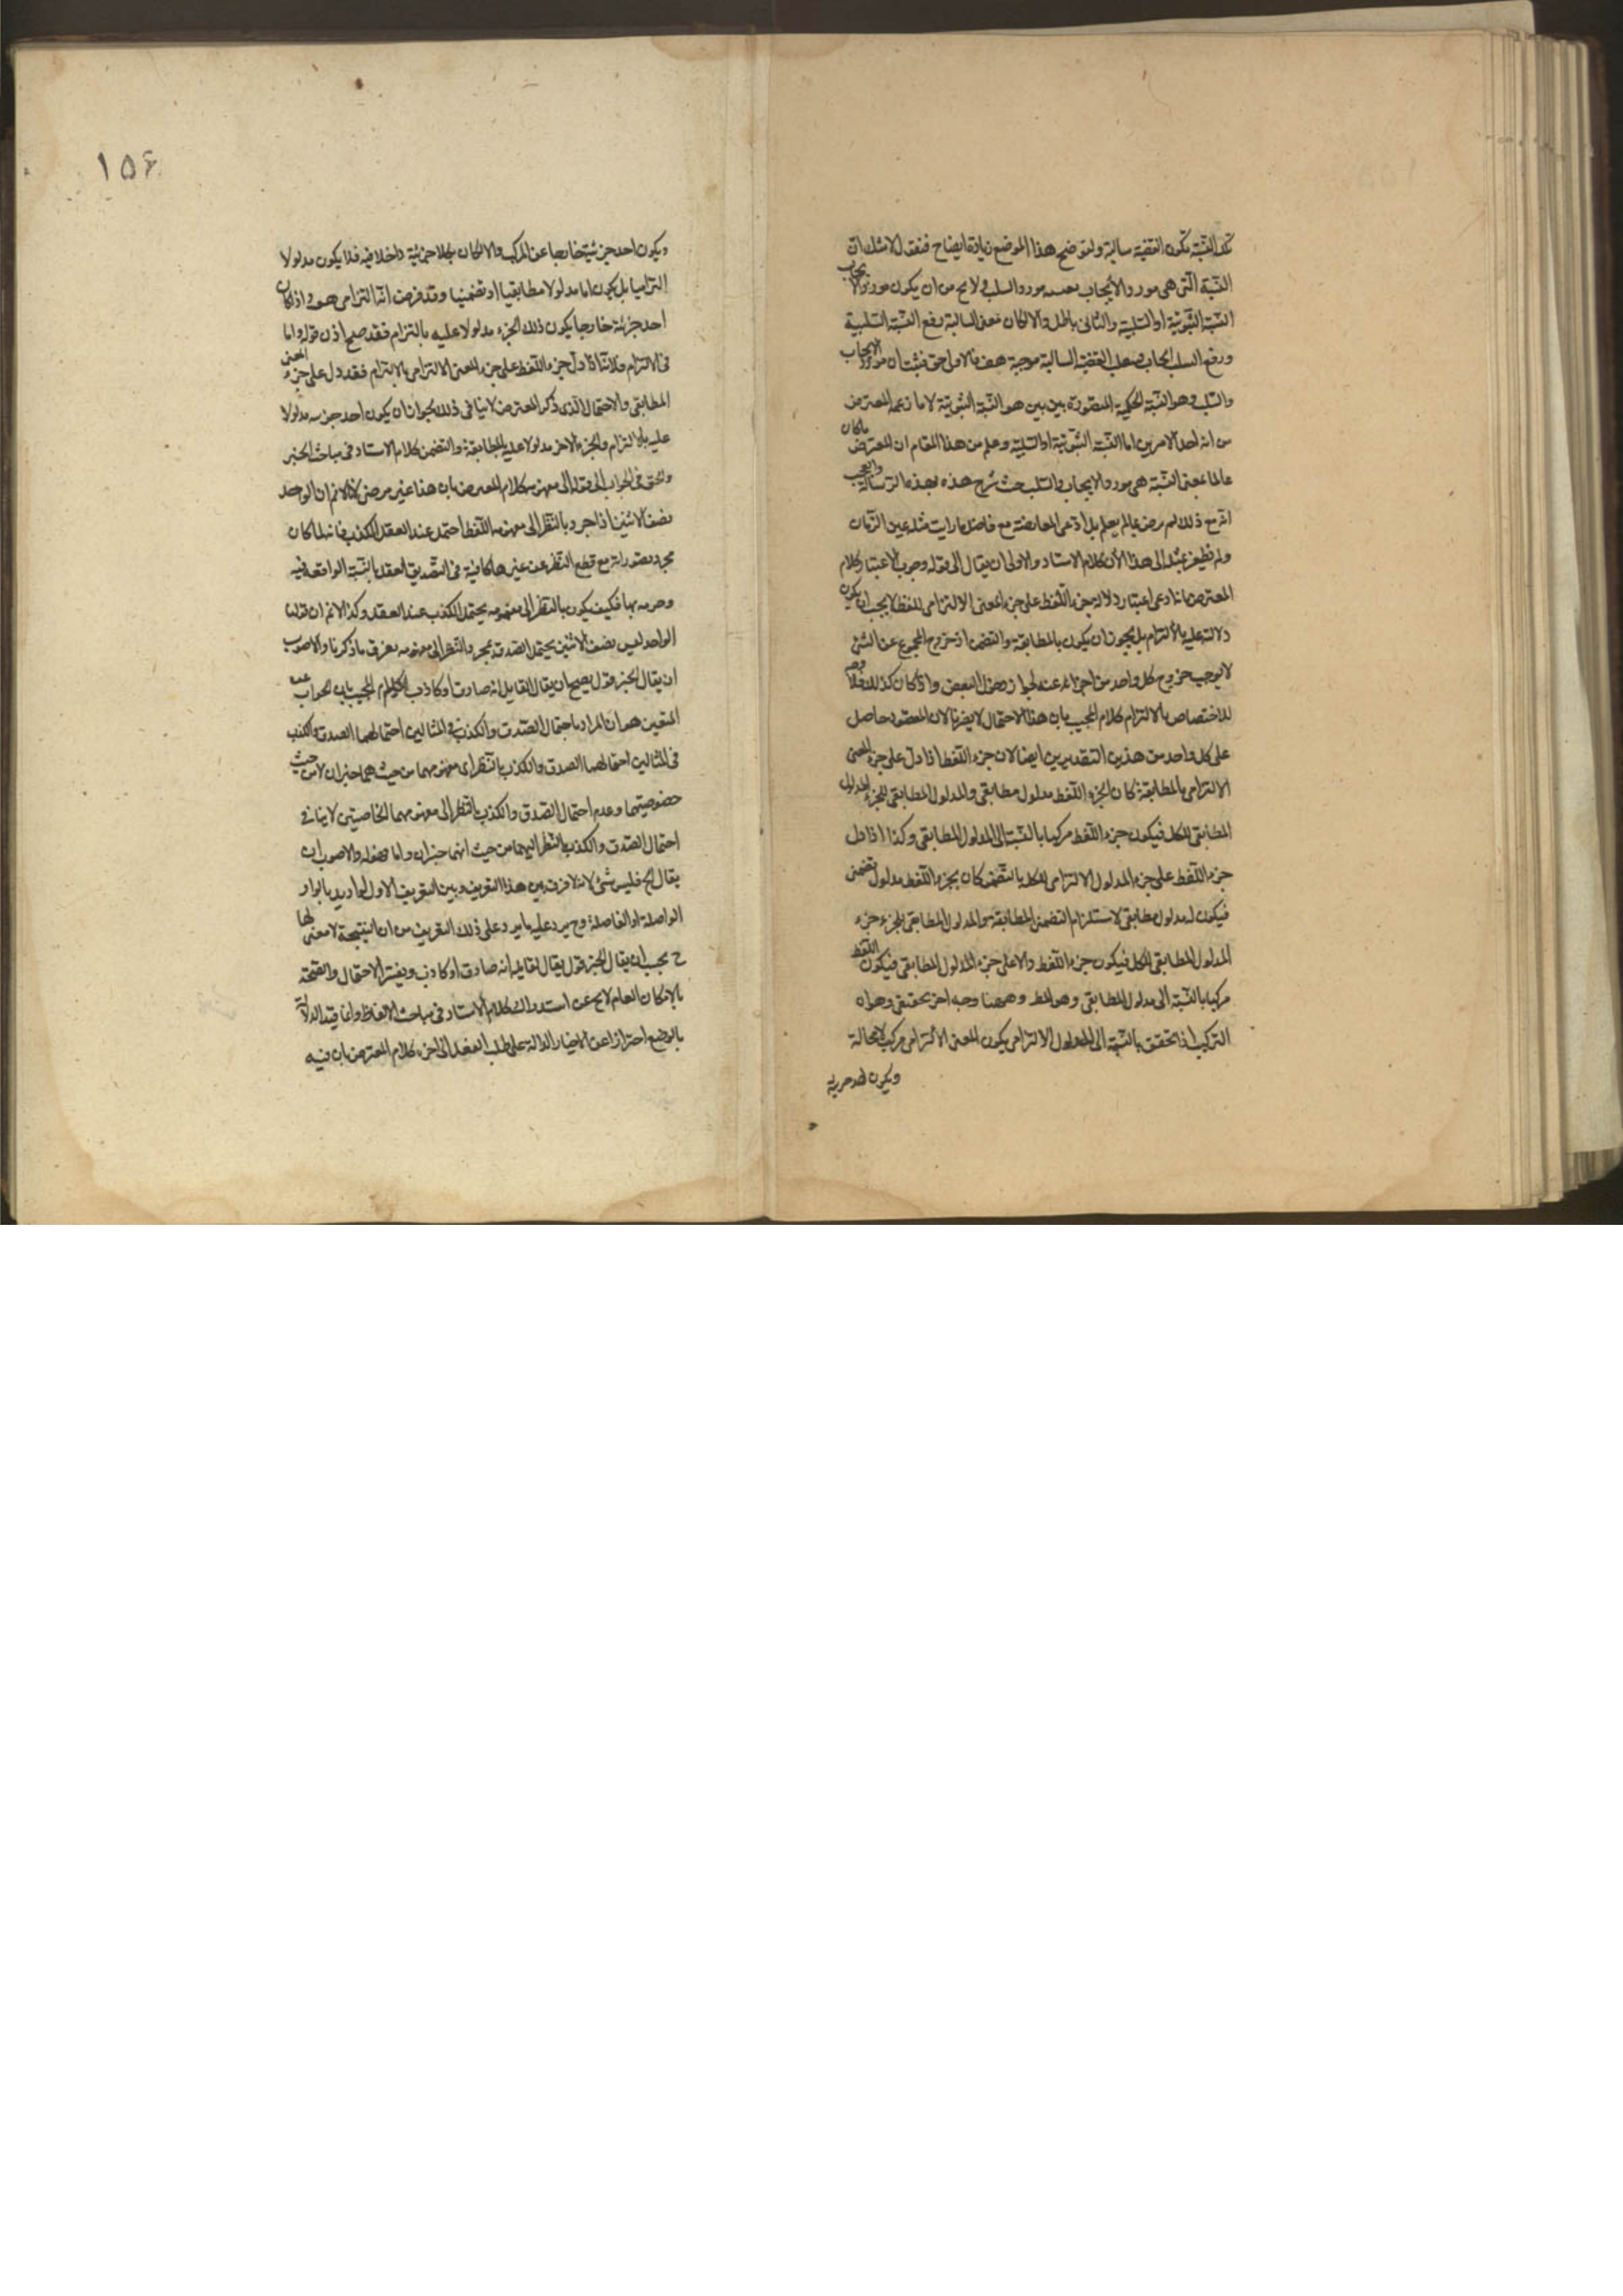 تلك النسبة تكون القضية سالبة ولنوضح هذا الموضع زيادة ايضاح فنقول لا شك ان
النسبة التى هى مورد الايجاب بعينه مورد السلب ولا يخ من ان يكون مورد الايجاب
النسبة الثبوتية او السلبية والثانى باطل والا لكان معنى السالبة رفع النسبة السلبية
ورفع السلب ايجاب القضية السالبة موجبة هف فالاول حق فثبت ان مورد الايجاب
والسلب هو النسبة الحكمية المتصورة بين بين هو النسبة الثبوتية لا ما زعمه المعترض
من انه احد الامرين اما النسبة الثبوتية او السلبية وعلم من هذا المقام ان المعترض ما كان
عالما بمعنى النسبة هى مورد الايجاب والسلب حيث شرح هذه الرسالة والعجب
انه مع ذلك لم يرض بما لم يعلم بل ادعى المعارضة مع فاضل ما رايت مثله عين الزمان
ولم نظيره الى هذا الآن كلام الاستاد والاولى ان يقال الى قوله وجوب الاعتبار كلام
المعترض بانا دعى اعتبار دلالة جزء اللفظ على جزء المعنى الالتزامى للفظ لا يجب ان يكون
دلالته عليه بالالتزام بل يجوز ان يكون بالمطابقة والتضمن اذ خروج المجموع عن الشئ
لا يوجب خروج كل واحد من اجزائه عنه لجواز دخول البعض واذا كان كذلك فلا وجه
للاختصاص بالالتزام كلام المجيب بان هذا الاحتمال لا يضرنا لان المقصود حاصل
على كل واحد من هذين التقديرين ايضا لان جزء اللفظ اذا دل على جزء المعنى
الالتزامى بالمطابقة كان لجزء اللفظ مدلول مطابقى والمدلول المطابقى للجزء المدلول
المطابقى للكل فيكون جزء اللفظ مركبا بالنسبة الى المدلول المطابقى وكذا اذا دل
جزء اللفظ على جزء المدلول الالتزامى للكل بالتضمن كان لجزء اللفظ مدلول تضمنى
فيكون له مدلول مطابقى لاستلزام التضمن المطابقة والمدلول المطابقى للجزء جزء
المدلول المطابقى للكل فيكون جزء اللفظ دالا على جزء المدلول المطابقى فيكون اللفظ
مركبا بالنسبة الى مدلول المطابقى وهو المط وههنا وجه اخر تحقيقى وهو ان
التركيب اذا تحقق بالنسبة الى المدلول الالتزامى يكون المعنى الالتزامى مركبا لا محالة
ويكون احد جزئية
١٥٦
ويكون احد جزئية خارجا عن المركب والا لكان كلا جزئية داخلا فيه فلا يكون مدلولا
التزاميا بل يكون اما مدلولا مطابقيا او تضمنيا وقد فرضت انه التزامى هف واذا كان
احد جزئية خارجا يكون ذلك الجزء مدلولا عليه بالتزام فقد صح اذن قوله واما
فى الالتزام فلانا اذا دل جزء اللفظ على جزء المعنى الالتزامى بالالتزام فقد دل على جزء المعنى
المطابقى والاحتمال الذى ذكر المعترض لا ينافى ذلك لجواز ان يكون احد جزئيه مدلولا
عليه بالالتزام والجزء الاخر مدلولا عليه بالمطابقة والتضمن كلام الاستاد فى مباحث الخبر
والحق فى الجواب الى قوله الى مفهومه كلام المعترض بان هذا غير مرضى لانا لا نم ان الواحد
نصف الاثنين اذا جرد بالنظر الى مفهومه اللفظ احتمل عند العقل الكذب فانه لما كان
مجرد تصوراته مع قطع النظر عن غيرها كافية فى التصديق العقل بالنسبة الواقعة فيه
وجزمه بها فكيف يكون بالنظر الى مفهومه يحتمل الكذب عند العقل وكذا لا نم ان قولنا
الواحد ليس نصف الاثنين يحتمل الصدق بمجرد النظر الى مفهومه يعرف ما ذكرنا والاصوب
ان يقال الخبر قول يصح ان يقال لقايله انه صادق او كاذب كلام المجيب بان الجواب عنه
المتعين هو ان المراد باحتمال الصدق والكذب فى المثالين احتمالهما الصدق والكذب
فى المثالين احتمالهما الصدق والكذب بالنظر الى مفهومهما من حيث هما خبران لا من حيث
خصوصيتهما وعدم احتمال الصدق والكذب بالنظر الى مفهومهما الخاصيتين لا ينافى
احتمال الصدق والكذب بالنظر اليهما من حيث انهما خبران واما قوله والاصوب ان
يقال الخ فليس شئ لانه لا فرق بين هذا التعريف وبين التعريف الاول لو اريد بالواو
الواصلة او الفاصلة وح يرد عليه ما يرد على ذلك التعريف من ان النتيجة لا معنى لها
ح يجب ان يقال الخبر قول يقال لقايله انه صادق او كاذب ويفسر الاحتمال والصحة
بالامكان العام لا يخ عن استدراك كلام الاستاد فى مباحث الالفاظ وانما قيد الدلالة
بالوضع احترازا عن الاخبار الدالة على طلب الفعل الى اخره كلام المعترض بان فيه